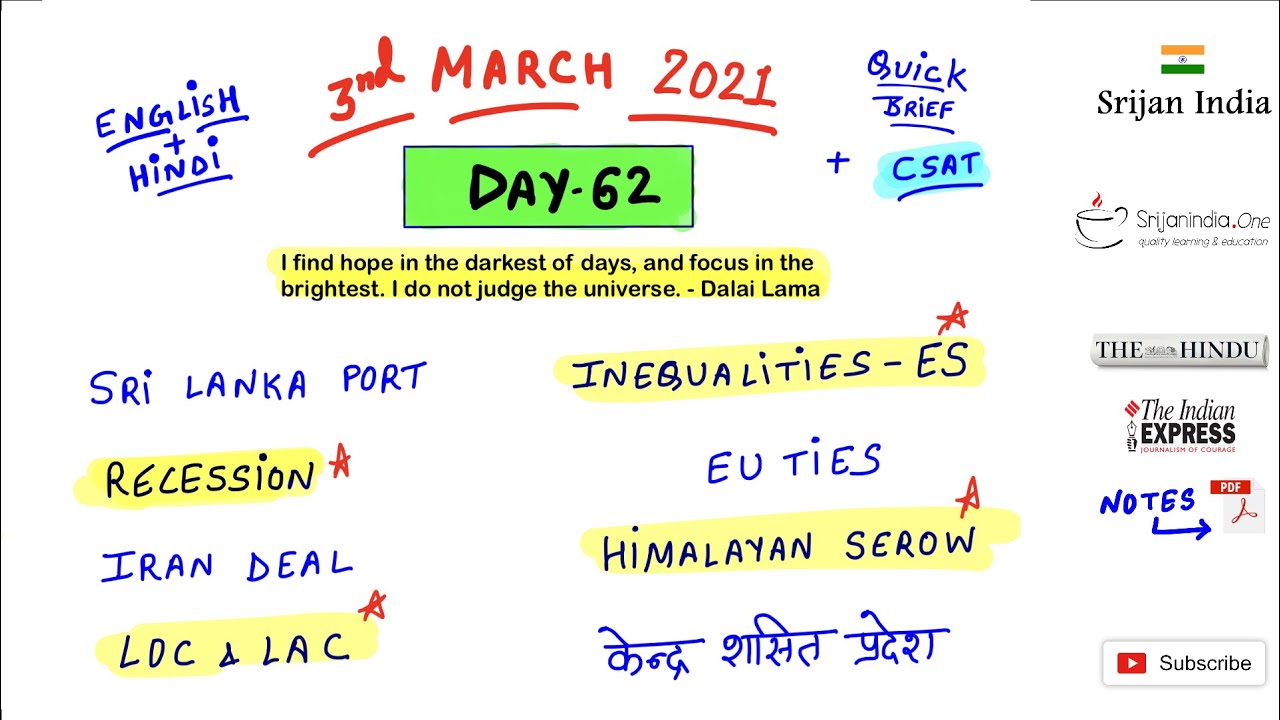 3nd MARCH 2021
ENGLISH
+
HINDI
QUICK
BRIEF
+ CSAT
DAY-62
I find hope in the darkest of days, and focus in the
brightest. I do not judge the universe. - Dalai Lama
SRI LANKA PORT
RECESSION
IRAN DEAL
LOC & LAC
INEQUALITIES - ES
EU TIES
HIMALAYAN SEROW
केन्द्र शासित प्रदेश
Srijan India
Srijanindia.One
quality learning & education
THE HINDU
The Indian
EXPRESS
JOURNALISM OF COURAGE
NOTES
PDF
Subscribe